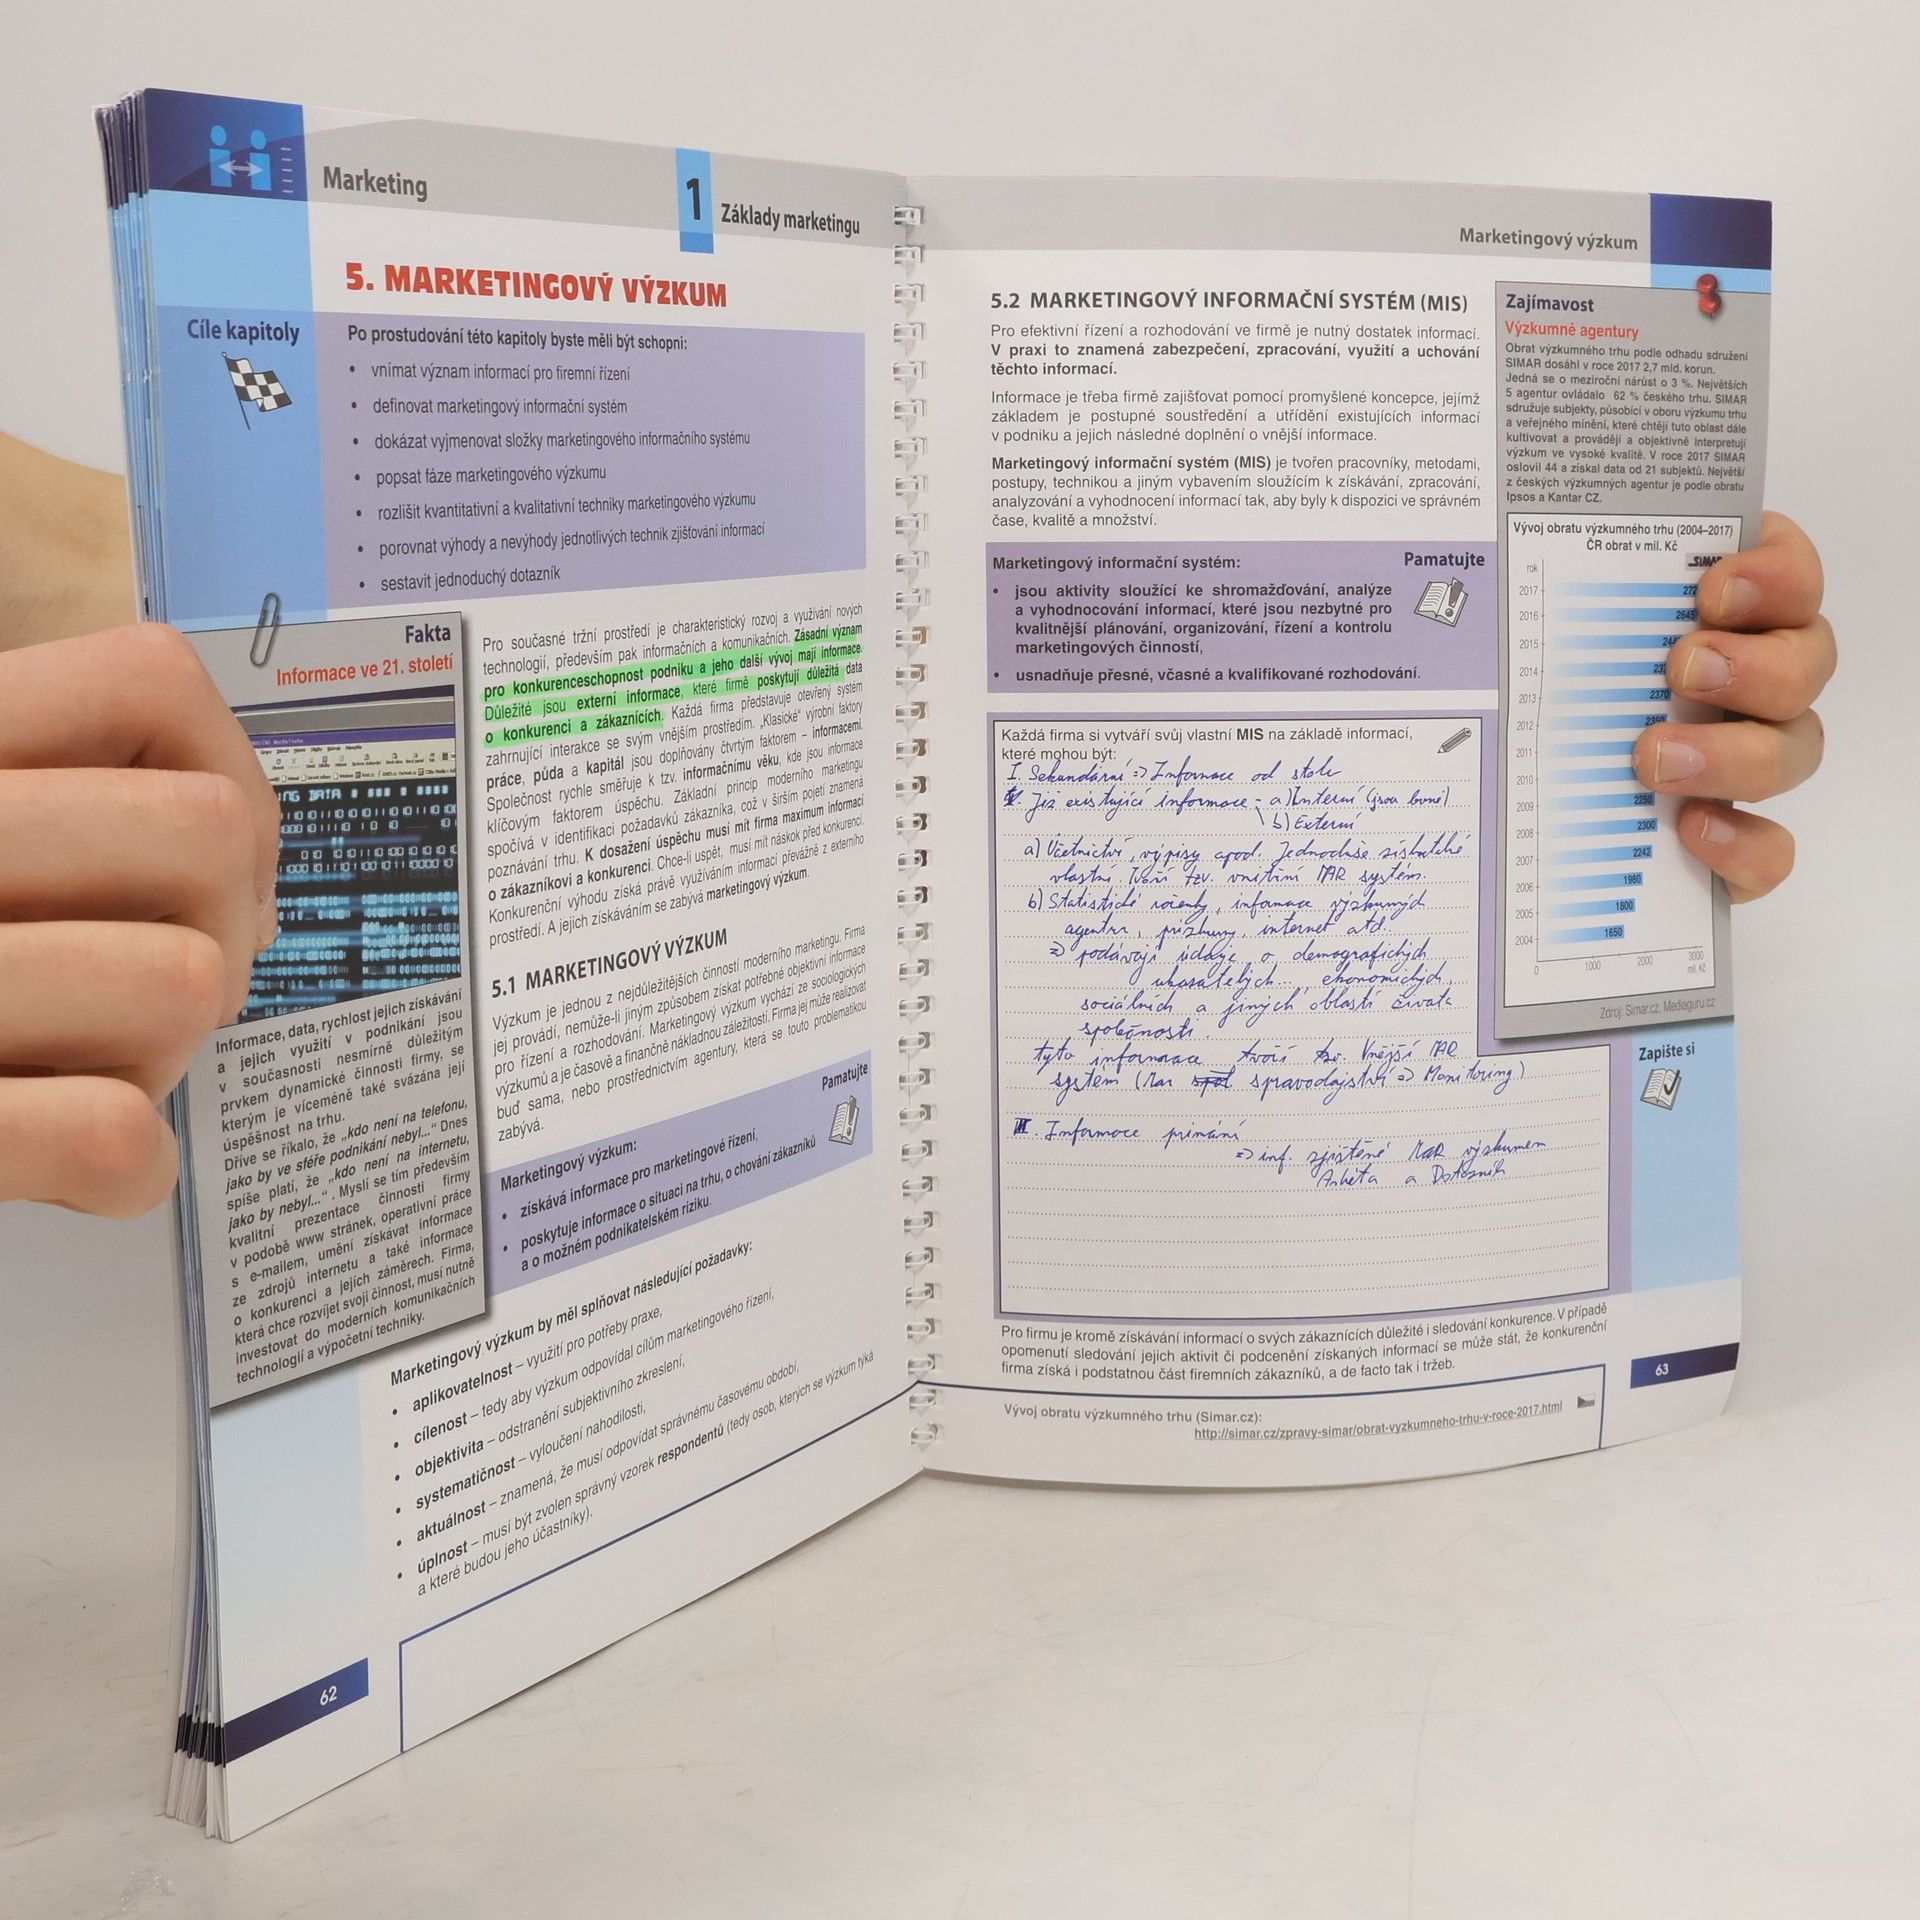 Marketing
1
Základy marketingu
5. MARKETINGOVÝ VÝZKUM
Cíle kapitoly
Po prostudování této kapitoly byste měli být schopni:
• vnímat význam informací pro firemní řízení
• definovat marketingový informační systém
• dokázat vyjmenovat složky marketingového informačního systému
• popsat fáze marketingového výzkumu
• rozlišit kvantitativní a kvalitativní techniky marketingového výzkumu
• porovnat výhody a nevýhody jednotlivých technik zjišťování informací
• sestavit jednoduchý dotazník
Fakta
Informace ve 21. století
Informace, data, rychlost jejich získávání
a jejich využití v podnikání jsou
v současnosti nesmírně důležitým
prvkem dynamické činnosti firmy, se
kterým je víceméně také svázána její
úspěšnost na trhu.
Dříve se říkalo, že „kdo není na telefonu,
jako by ve sféře podnikání nebyl...“ Dnes
spíše platí, že „kdo není na internetu,
jako by nebyl...“. Myslí se tím především
kvalitní prezentace činnosti firmy
v podobě www stránek, operativní práce
s e-mailem, umění získávat informace
ze zdrojů internetu a také informace
o konkurenci a jejích záměrech. Firma,
která chce rozvíjet svoji činnost, musí nutně
investovat do moderních komunikačních
technologií a výpočetní techniky.
Pro současné tržní prostředí je charakteristický rozvoj a využívání nových
technologií, především pak informačních a komunikačních. Zásadní význam
pro konkurenceschopnost podniku a jeho další vývoj mají informace.
Důležité jsou externí informace, které firmě poskytují důležitá data
o konkurenci a zákaznících. Každá firma představuje otevřený systém
zahrnující interakce se svým vnějším prostředím. „Klasické“ výrobní faktory
práce, půda a kapitál jsou doplňovány čtvrtým faktorem – informacemi.
Společnost rychle směřuje k tzv. informačnímu věku, kde jsou informace
klíčovým faktorem úspěchu. Základní princip moderního marketingu
spočívá v identifikaci požadavků zákazníka, což v širším pojetí znamená
poznávání trhu. K dosažení úspěchu musí mít firma maximum informací
o zákazníkovi a konkurenci. Chce-li uspět, musí mít náskok před konkurencí.
Konkurenční výhodu získá právě využíváním informací převážně z externího
prostředí. A jejich získáváním se zabývá marketingový výzkum.
5.1 MARKETINGOVÝ VÝZKUM
Výzkum je jednou z nejdůležitějších činností moderního marketingu. Firma
jej provádí, nemůže-li jiným způsobem získat potřebné objektivní informace
pro řízení a rozhodování. Marketingový výzkum vychází ze sociologických
výzkumů a je časově a finančně nákladnou záležitostí. Firma jej může realizovat
buď sama, nebo prostřednictvím agentury, která se touto problematikou
zabývá.
Pamatujte
Marketingový výzkum:
• získává informace pro marketingové řízení,
• poskytuje informace o situaci na trhu, o chování zákazníků
a o možném podnikatelském riziku.
Marketingový výzkum by měl splňovat následující požadavky:
• aplikovatelnost – využití pro potřeby praxe,
• cílenost – tedy aby výzkum odpovídal cílům marketingového řízení,
• objektivita – odstranění subjektivního zkreslení,
• systematičnost – vyloučení nahodilosti,
• aktuálnost – znamená, že musí odpovídat správnému časovému období,
• úplnost – musí být zvolen správný vzorek respondentů (tedy osob, kterých se výzkum týká
a které budou jeho účastníky).
62
Marketingový výzkum
5.2 MARKETINGOVÝ INFORMAČNÍ SYSTÉM (MIS)
Pro efektivní řízení a rozhodování ve firmě je nutný dostatek informací.
V praxi to znamená zabezpečení, zpracování, využití a uchování
těchto informací.
Informace je třeba firmě zajišťovat pomocí promyšlené koncepce, jejímž
základem je postupné soustředění a utřídění existujících informací
v podniku a jejich následné doplnění o vnější informace.
Marketingový informační systém (MIS) je tvořen pracovníky, metodami,
postupy, technikou a jiným vybavením sloužícím k získávání, zpracování,
analyzování a vyhodnocení informací tak, aby byly k dispozici ve správném
čase, kvalitě a množství.
Marketingový informační systém:
Pamatujte
• jsou aktivity sloužící ke shromažďování, analýze
a vyhodnocování informací, které jsou nezbytné pro
kvalitnější plánování, organizování, řízení a kontrolu
marketingových činností,
• usnadňuje přesné, včasné a kvalifikované rozhodování.
Každá firma si vytváří svůj vlastní MIS na základě informací,
které mohou být:
I. Sekundární => Informace od stolu
Již existující informace - a) Interní (jsou levné)
b) Externí
a) Účetnictví, výpisy apod. Jednoduše získatelné
vlastní. Tvoří tzv. vnitřní MAR systém.
b) Statistické ročenky, informace výzkumných
agentur, průzkumy, internet atd.
=> podávají údaje o demografických
ukazatelých... ekonomických,
sociálních a jiných oblastí života
společnosti.
tyto informace tvoří tzv. Vnější MAR
systém (Mar zpravodajství => Monitoring)
II. Informace primární
=> inf. zjištěné MAR výzkumem
Anketa a Dotazník
Pro firmu je kromě získávání informací o svých zákaznících důležité i sledování konkurence. V případě
opomenutí sledování jejich aktivit či podcenění získaných informací se může stát, že konkurenční
firma získá i podstatnou část firemních zákazníků, a de facto tak i tržeb.
Vývoj obratu výzkumného trhu (Simar.cz):
http://simar.cz/zpravy-simar/obrat-vyzkumneho-trhu-v-roce-2017.html
Zajímavost
Výzkumné agentury
Obrat výzkumného trhu podle odhadu sdružení
SIMAR dosáhl v roce 2017 2,7 mld. korun.
Jedná se o meziroční nárůst o 3 %. Největších
5 agentur ovládalo 62 % českého trhu. SIMAR
sdružuje subjekty, působící v oboru výzkumu trhu
a veřejného mínění, které chtějí tuto oblast dále
kultivovat a provádějí a objektivně interpretují
výzkum ve vysoké kvalitě. V roce 2017 SIMAR
oslovil 44 a získal data od 21 subjektů. Největší
z českých výzkumných agentur je podle obratu
Ipsos a Kantar CZ.
Vývoj obratu výzkumného trhu (2004–2017)
ČR obrat v mil. Kč
SIMAR
rok
2017
2016 2645
2015
2014
2013 2370
2012 2350
2011
2010
2009 2250
2008 2300
2007 2242
2006 1980
2005 1800
2004 1650
0 1000 2000 3000
mil. Kč
Zdroj: Simar.cz, Mediaguru.cz
Zapište si
63